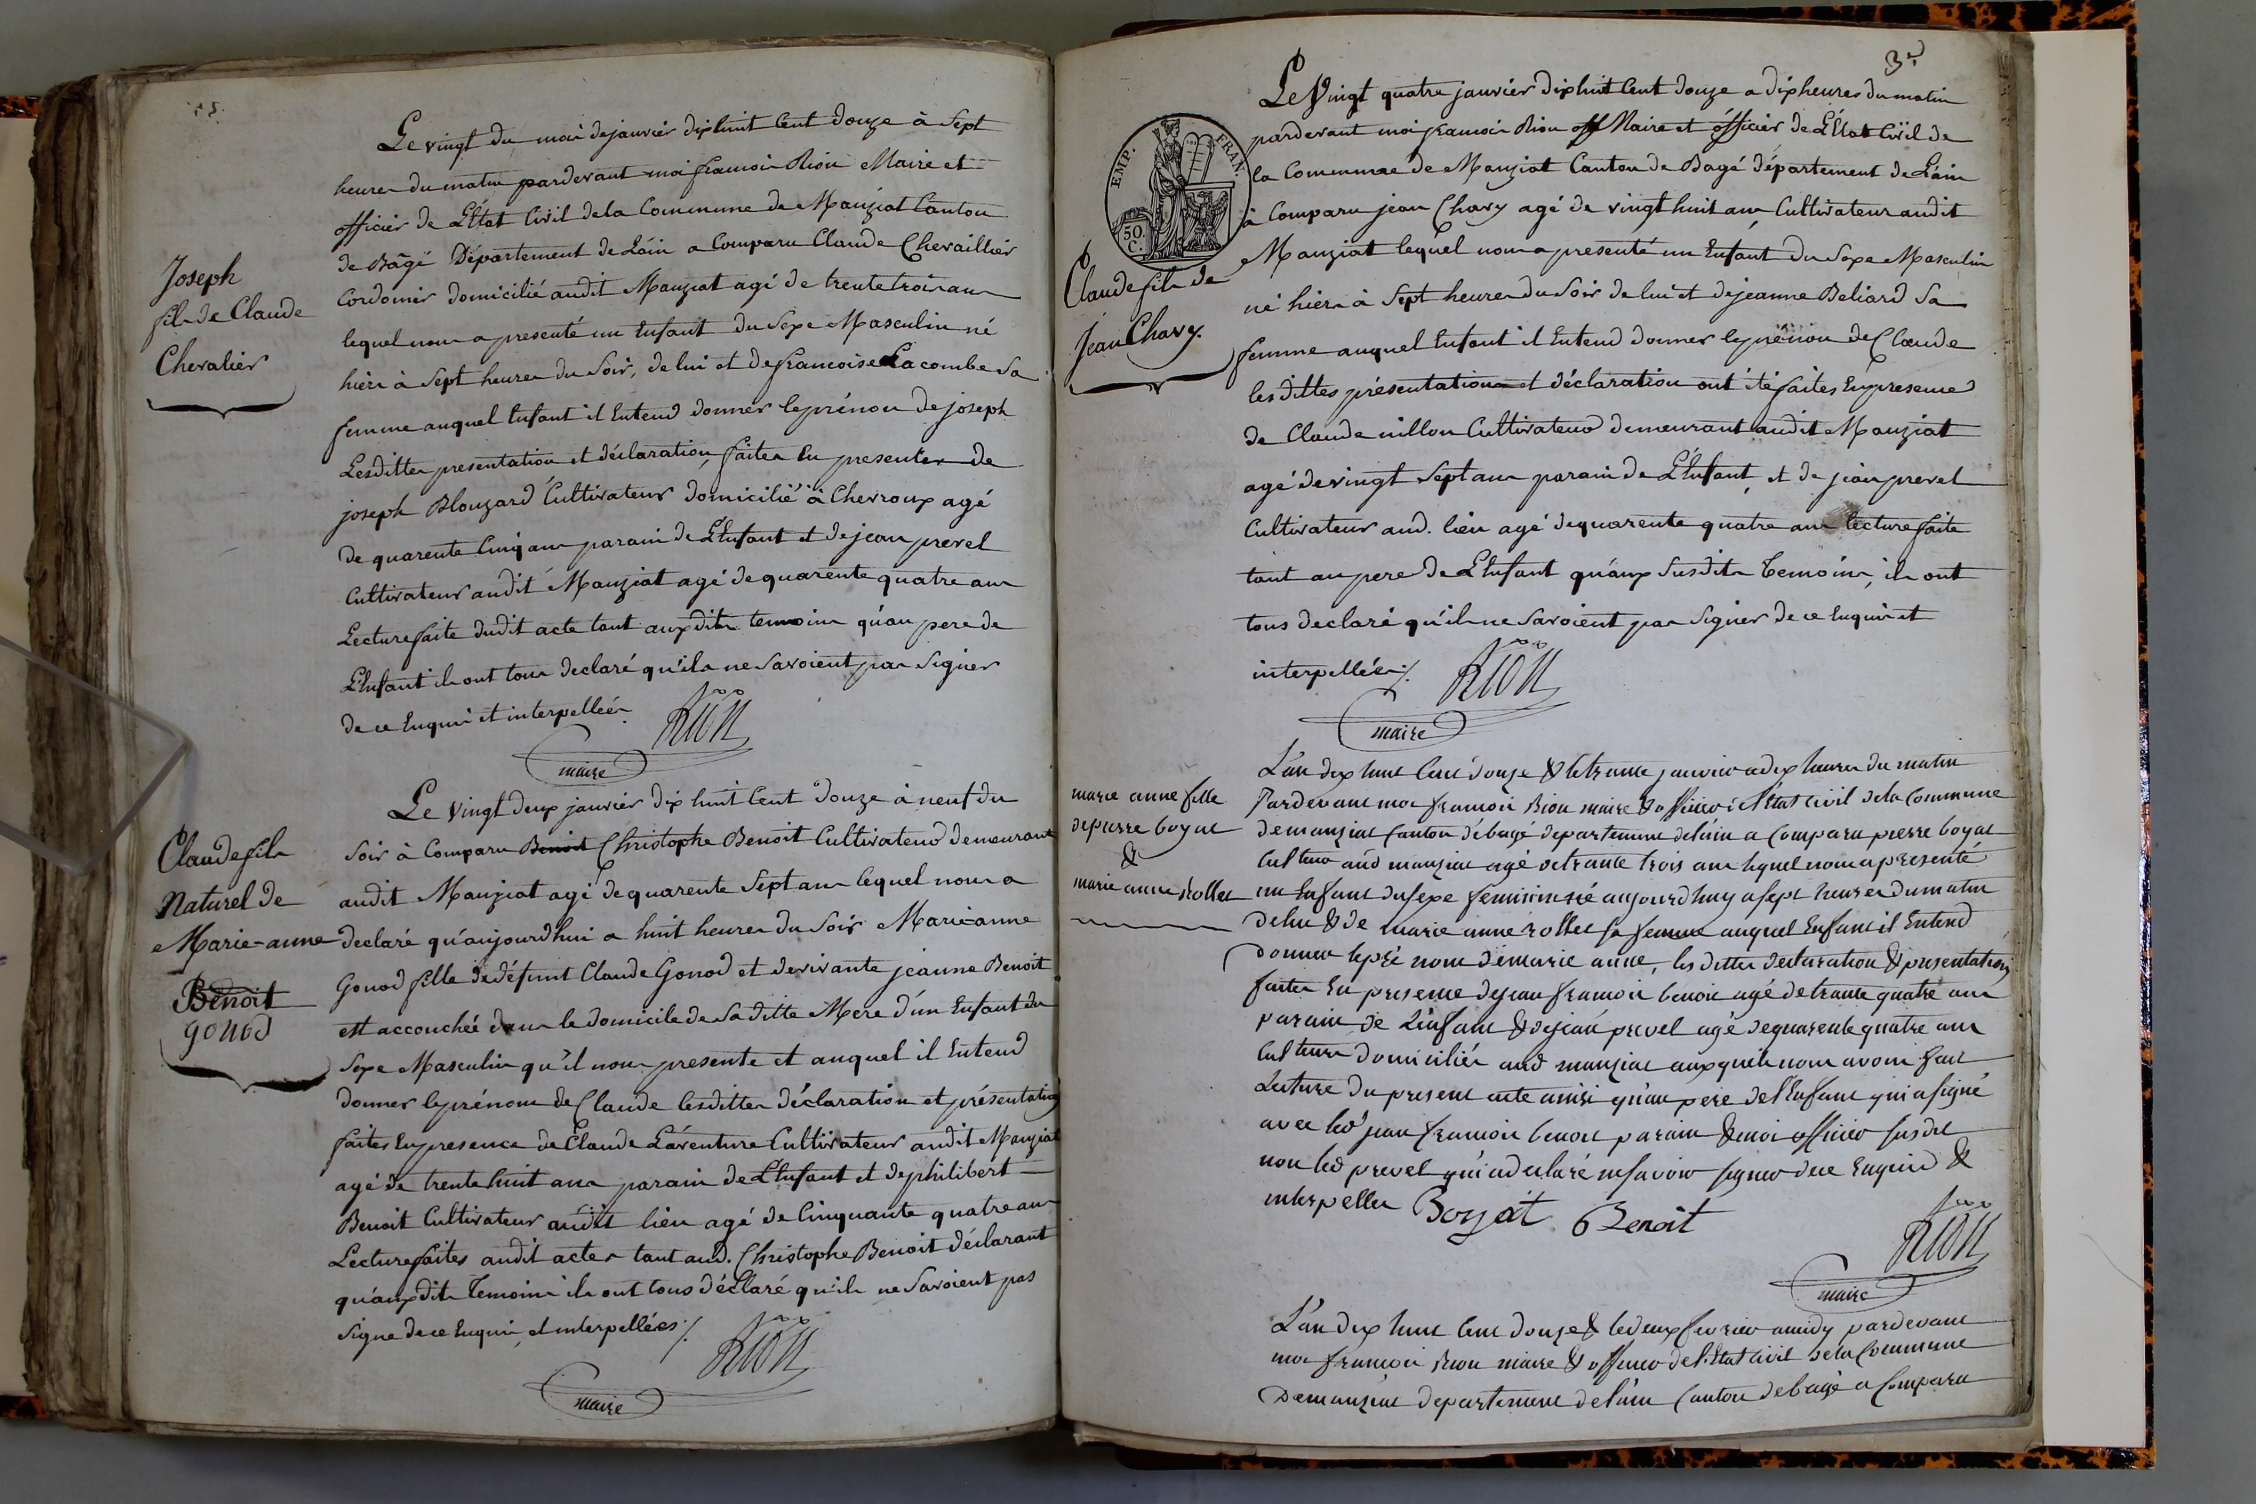 Joseph
fils de Claude
Chevalier
Le vingt du mois de janvier dix huit Cent douze à Sept
heures du matin pardevant moi francois Rion Maire et
officier de L'Etat Civil de la Commune de Manziat Canton
de Bâgé Département de L'ain a Comparu Claude Chevaillier
Cordonier domicilié audit Manziat agé de trente trois ans
lequel nous a presenté un Enfant du Sexe Masculin né
hier à Sept heures du Soir, de lui et de francoise Lacombe Sa
femme auquel Enfant il Entend donner le prénom de joseph
Lesdittes presentation et déclaration faites En presentes de
joseph Blouzard Cultivateur domicilié à Chevroux agé
de quarente Cinq ans parain de L'Enfant et de jean prevel
Cultivateur audit Manziat agé de quarente quatre ans
Lecture faite dudit acte tant auxdits temoins qu'au pere de
L'Enfant ils ont tous declaré qu'ils ne Savoient pas Signer
de ce Enquis et interpellés
Rion
maire
Claude fils
Naturel de
Marie-anne
Benoit
gonod
Le vingt deux janvier dix huit Cent douze à neuf du
Soir à Comparu Benoit Christophe Benoit Cultivateur demeurant
audit Manziat agé de quarente Sept ans lequel nous a
declaré qu'aujourdhui a huit heures du Soir Marie-anne
Gonod fille de défunt Claude Gonod et de vivante jeanne Benoit
est accouchée dans le domicile de Sa ditte Mere d'un Enfant du
Sexe Masculin qu'il nous presente et auquel il Entend
donner le prénom de Claude lesdittes déclaration et présentation
faites En presence de Claude Laventure Cultivateur audit Manziat
agé de trente huit ans parain de L'Enfant et de philibert
Benoit Cultivateur audit lieu agé de Cinquante quatre ans
Lecture faites audit actes tant aud. Christophe Benoit déclarant
qu'auxdits Temoins ils ont tous déclaré qu'ils ne Savoient pas
Signe de ce Enquis et interpellées ./.
Rion
maire
3
EMP. FRAN.
50.
C.
Le Vingt quatre janvier dix huit Cent douze a dix heures du matin
pardevant moi francois Rion off Maire et officier de L'Etat Civil de
la Commune de Manziat Canton de Bagé département de L'ain
à Comparu jean Chavy agé de vingt huit ans Cultivateur audit
Manziat lequel nous a presenté un Enfant du Sexe Masculin
né hier à Sept heures du Soir de lui et de jeanne Beliard Sa
femme auquel Enfant il Entend donner le prénom de Claude
les dittes présentation et déclaration ont été faites En presence
de Claude nillon Cultivateur demeurant audit Manziat
agé de vingt Sept ans parain de L'Enfant, et de jean prevel
Cultivateur aud. lieu agé de quarente quatre ans lecture faite
tant au pere de L'Enfant qu'aux Susdits Temoins, ils ont
tous declaré qu'ils ne Savoient pas Signer de ce Enquis et
interpellés ./. Rion
maire
Claude fils de
Jean Chavy.
marie anne fille
de pierre boyat
&
marie anne Rollet
L'an dix huit Cent douze & le trante janvier a dix heures du matin
Pardevant moi francois Rion maire & officier de l'Etat civil de la Commune
de manziat Canton de bagé departement de l'ain a Comparu pierre boyat
Cultiver aud manziat agé de trante trois ans lequel nous a presenté
un Enfant du sexe feminin né aujourd'huy a sept heures du matin
de lui & de marie anne rollet sa femme auquel Enfant il Entend
donner le pré nom de marie anne, les dittes declaration & presentation
faites En presence de jean francois benoit agé de trante quatre ans
parain de L'infant & de jean prevel agé de quarente quatre ans
Cultivateurs domiciliés aud manziat auxquels nous avons fait
Lecture du present acte ainsi qu'au pere de l'Enfant qui a signé
avec led jean francois benoit parain & moi officier susdit
non led prevel qui a declaré ne savoir signer de ce Enquis &
interpelles Boyat Benoit
Rion
maire
L'an dix huit Cent douze & le deux fevrier a midy pardevant
moi francois Rion maire & officier de l'Etat civil de la Commune
de manziat departement de l'ain Canton de bagé a Comparu